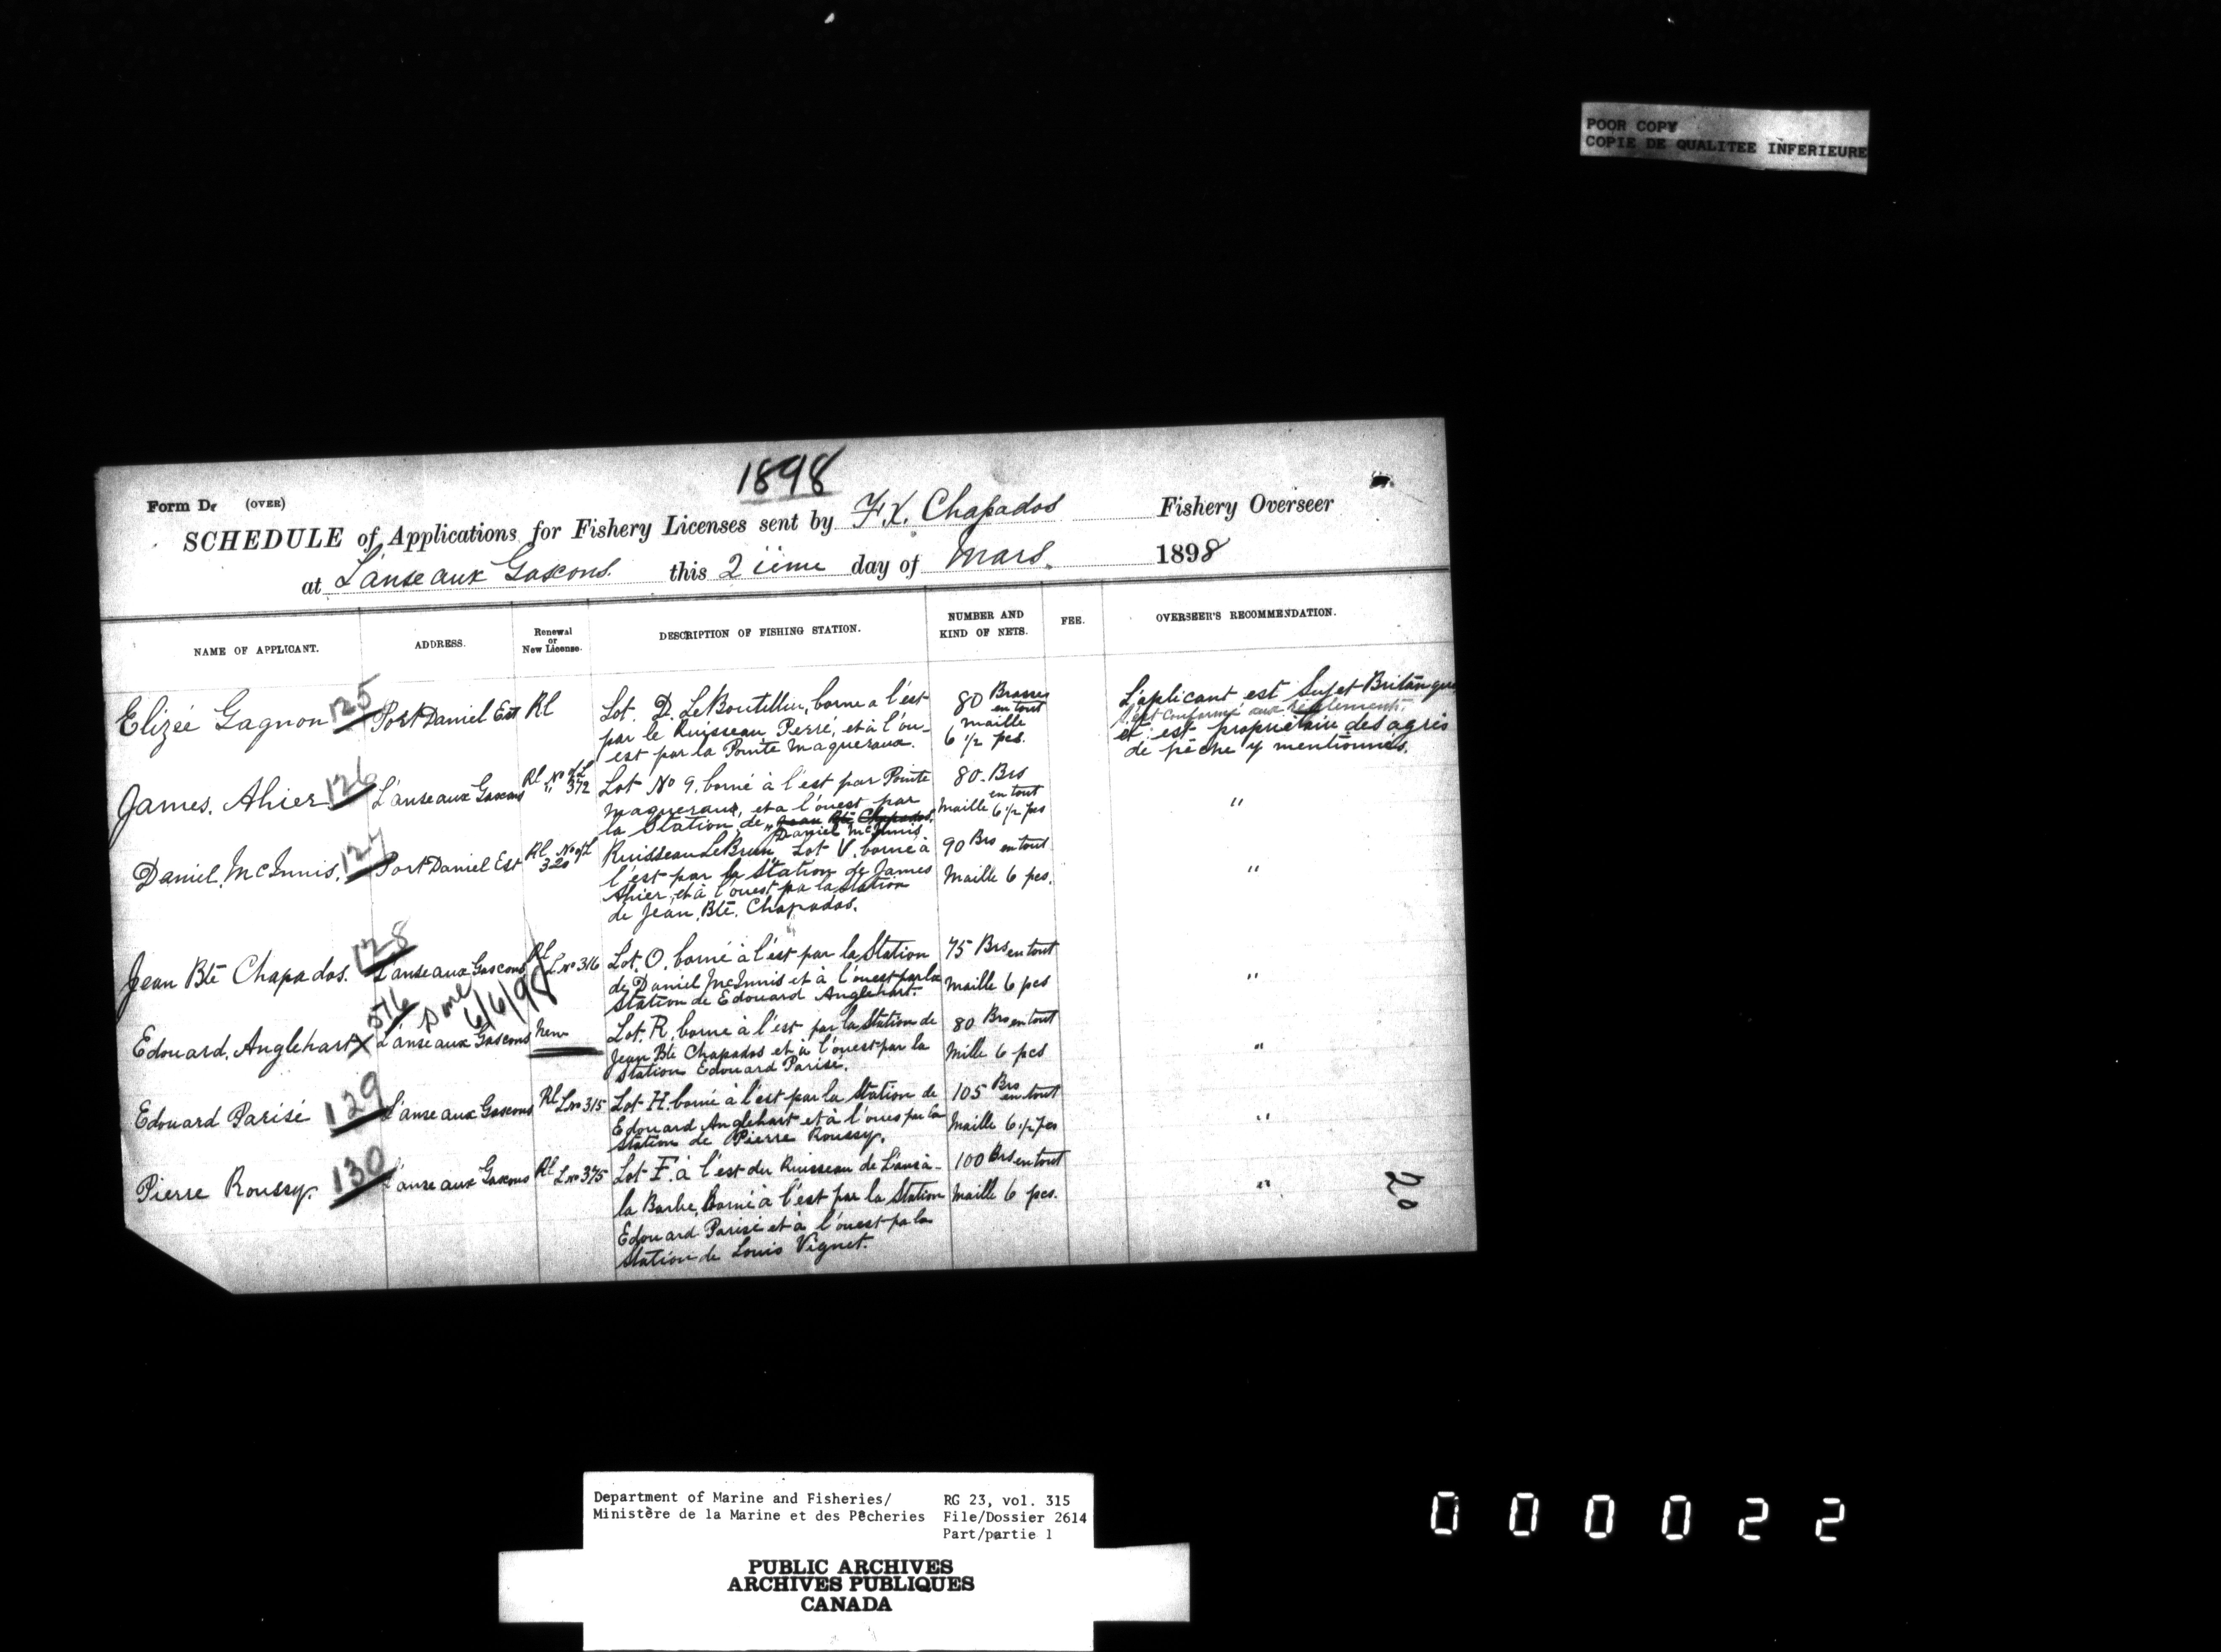 POOR COPY
COPIE DE QUALITEE INFERIEURE
1898
Form D. (OVER)
SCHEDULE of Applications for Fishery Licenses sent by F.X. Chapados Fishery Overseer
at L'anse aux Gascons. this 2 ième day of Mars. 1898
NAME OF APPLICANT. ADDRESS. Renewal or New License. DESCRIPTION OF FISHING STATION. NUMBER AND KIND OF NETS. FEE. OVERSEER'S RECOMMENDATION.
Elizée Gagnon 125 Port Daniel Est Rl
Lot. D. LeBoutillier, borne a l'est
par le Ruisseau Perré, et à l'ou-
est par la Pointe Maqueraux.
80 Brasses
en tout
maille
6 1/2 pcs.
L'aplicant est Sujet Britanique
s'est conformé aux règlements,
et est propriétaire des agrès
de pêche y mentionnés.
James. Ahier 126 L'anse aux Gascons Rl No of L
" 372
Lot No 9. borné à l'est par Pointe
Maqueraux, et a l'ouest par
la Station de Jean Bte Chapados.
Daniel McInnis
80. Brs
en tout
Maille 6 1/2 pcs
"
Daniel. McInnis. 127 Port Daniel Est Rl No of L
320
Ruisseau LeBrun Lot V. borné à
l'est par la Station de James
Ahier, et à l'ouest pa la Station
de Jean. Bte. Chapados.
90 Brs en tout
Maille 6 pcs.
"
Jean Bte Chapados. 128 L'anse aux Gascons Rl
L No 316
Lot. O. borné à l'est par la Station
de Daniel McInnis et à l'ouest par la
Station de Edouard Anglehart.
75 Brs en tout
Maille 6 pcs
"
576 Done
6/6/98
Edouard. Anglehart X L'anse aux Gascons New
Lot. R. borné à l'est par la Station de
Jean Bte Chapados et à l'ouest par la
Station Edouard Parisé.
80 Brs en tout
Mille 6 pcs
"
Edouard Parisé 129 L'anse aux Gascons Rl L no 315
Lot H. borné à l'est par la Station de
Edouard Anglehart et à l'oues par la
Station de Pierre Roussy.
105 Brs
en tout
Maille 6 1/2 pcs
"
Pierre Roussy. 130 L'anse aux Gascons Rl L no 375
Lot F. à l'est du Ruisseau de L'ansà-
la Barbe, Borné à l'est par la Station
Edouard Parisé et à l'ouest pa la
Station de Louis Vignet.
100 Brs en tout
Maille 6 pcs.
"
20
Department of Marine and Fisheries/ RG 23, vol. 315
Ministère de la Marine et des Pêcheries File/Dossier 2614
Part/partie 1
PUBLIC ARCHIVES
ARCHIVES PUBLIQUES
CANADA
000022